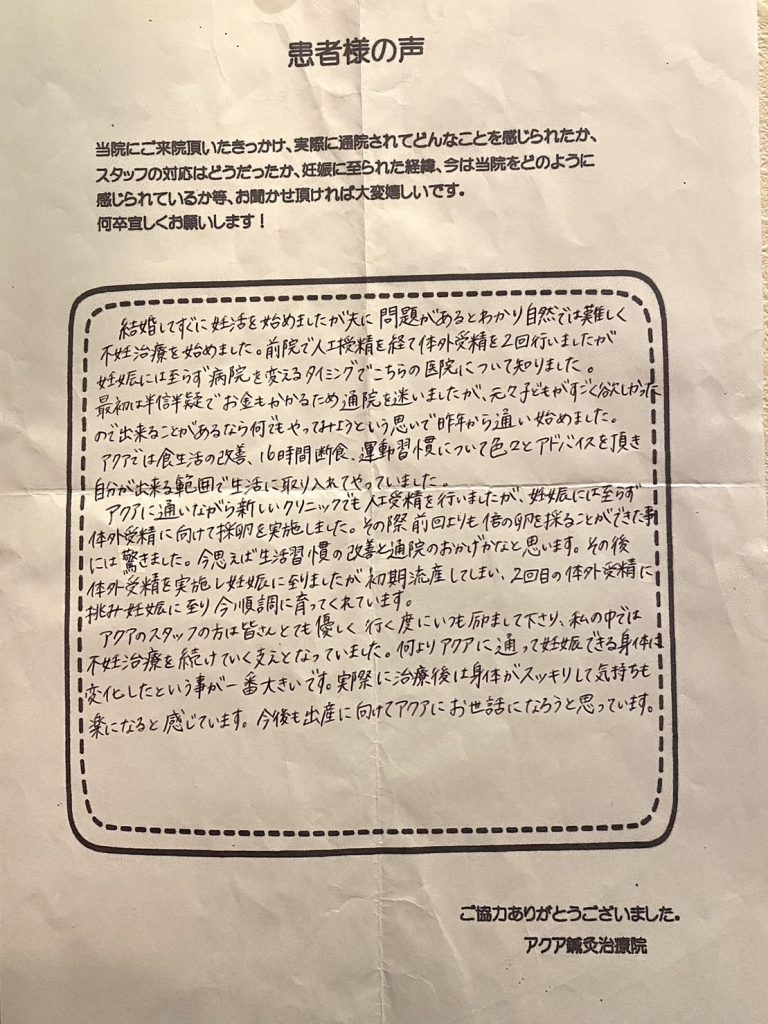 患者様の声
当院にご来院頂いたきっかけ、実際に通院されてどんなことを感じられたか、
スタッフの対応はどうだったか、妊娠に至られた経緯、今は当院をどのように
感じられているか等、お聞かせ頂ければ大変嬉しいです。
何卒宜しくお願いします！
結婚してすぐに妊活を始めましたが夫に問題があるとわかり自然では難しく
不妊治療を始めました。前院で人工授精を経て体外受精を2回行いましたが
妊娠には至らず病院を変えるタイミングでこちらの医院について知りました。
最初は半信半疑でお金もかかるため通院を迷いましたが、元々子どもがすごく欲しかった
ので出来ることがあるなら何でもやってみようという思いで昨年から通い始めました。
アクアでは食生活の改善、16時間断食、運動習慣について色々とアドバイスを頂き
自分が出来る範囲で生活に取り入れてやっていました。
アクアに通いながら新しいクリニックでも人工受精を行いましたが、妊娠には至らず
体外受精に向けて採卵を実施しました。その際前回よりも倍の卵を採ることができた事
には驚きました。今思えば生活習慣の改善と通院のおかげかなと思います。その後
体外受精を実施し妊娠に至りましたが初期流産してしまい、2回目の体外受精に
挑み妊娠に至り今順調に育ってくれています。
アクアのスタッフの方は皆さんとても優しく行く度にいつも励まして下さり、私の中では
不妊治療を続けていく支えとなっていました。何よりアクアに通って妊娠できる身体に
変化したという事が一番大きいです。実際に治療後は身体がスッキリして気持ちも
楽になると感じています。今後も出産に向けてアクアにお世話になろうと思っています。
ご協力ありがとうございました。
アクア鍼灸治療院